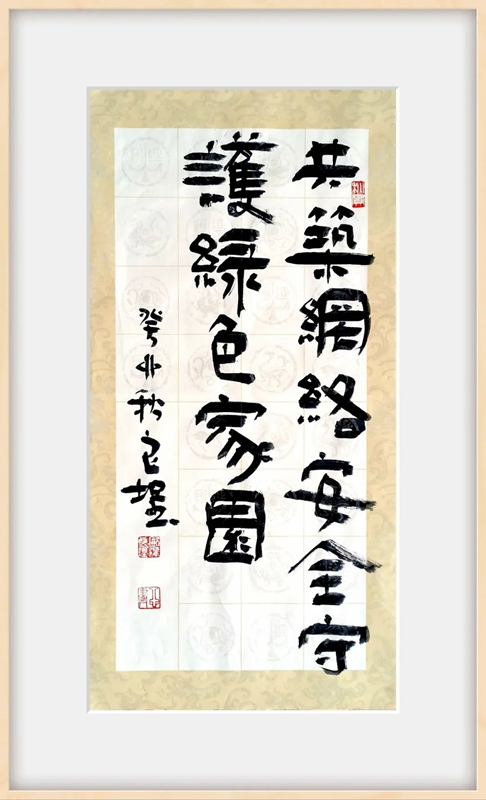 共築網絡安全守
護綠色家園
癸卯秋良